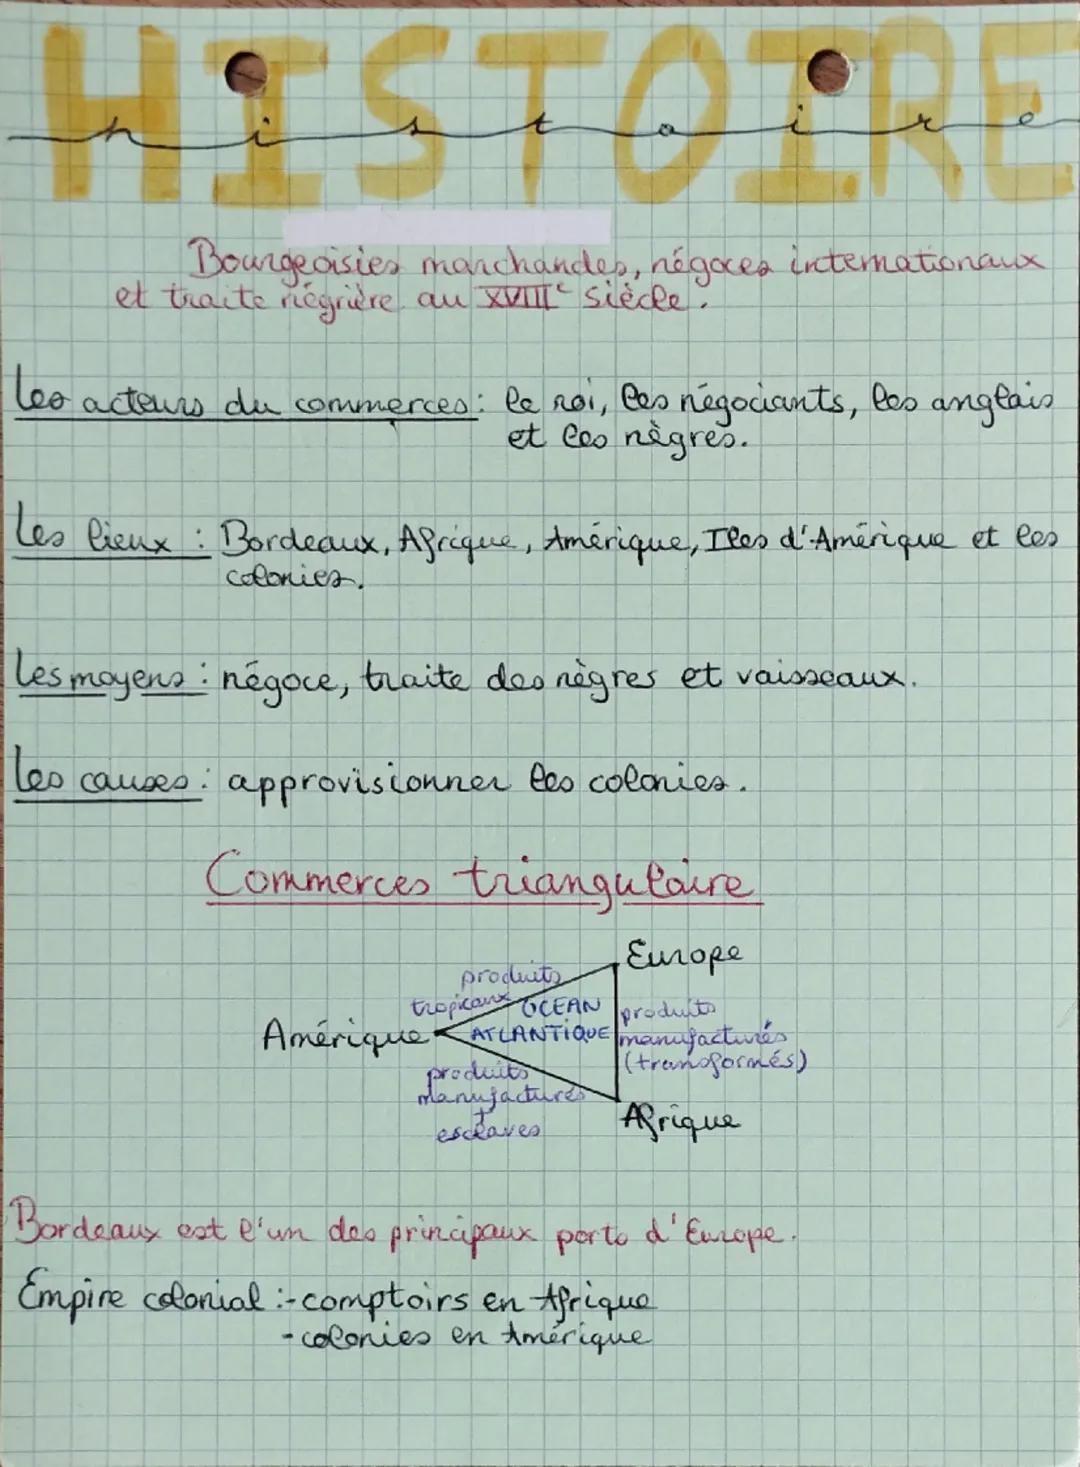 HISTOIRE
histoire
Bourgeoisies marchandes, négoces internationaux
et traite négrière au XVIIIe siècle.
Les acteurs du commerces : le roi, les négociants, les anglais
et les nègres.
Les lieux : Bordeaux, Afrique, Amérique, Iles d'Amérique et les
colonies.
Les moyens : négoce, traite des nègres et vaisseaux.
Les causes : approvisionner les colonies.
Commerces triangulaire
Europe
produits
tropicaux
OCEAN
ATLANTIQUE
Amérique
produits
manufacturés
(transformés)
produits
manufacturés
+
esclaves
Afrique
Bordeaux est l'un des principaux ports d'Europe.
Empire colonial :- comptoirs en Afrique
- colonies en Amérique